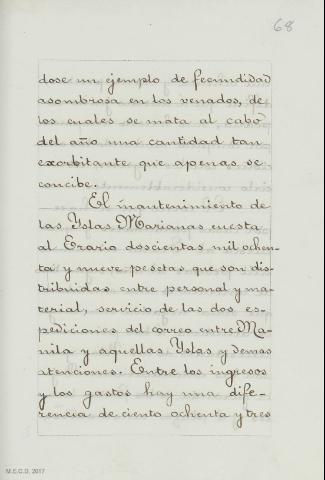 68
dose un ejemplo de fecundidad
asombrosa en los venados, de
los cuales se mata al cabo
del año una cantidad tan
exorbitante que apenas se
concibe.
El mantenimiento de
las Yslas Marianas cuesta
al Erario doscientas mil ochen-
ta y nueve pesetas que son dis-
tribuidas entre personal y ma-
terial, servicio de las dos es-
pediciones del correo entre Ma-
nila y aquellas Yslas y demas
atenciones. Entre los ingresos
y los gastos hay una dife-
rencia de ciento ochenta y tres
M.E.C.D. 2017